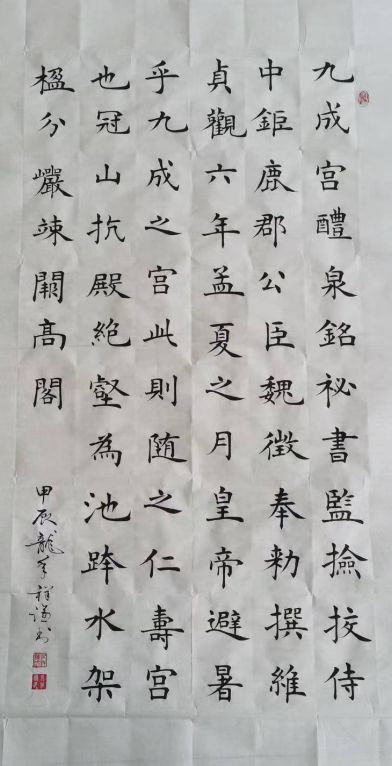 九成宫醴泉銘祕書監撿挍侍
中鉅鹿郡公臣魏徵奉勑撰維
貞觀六年孟夏之月皇帝避暑
乎九成之宫此則随之仁壽宫
也冠山抗殿絶壑為池跨水架
楹分巖竦闕高閣
甲辰龍年祥謙书